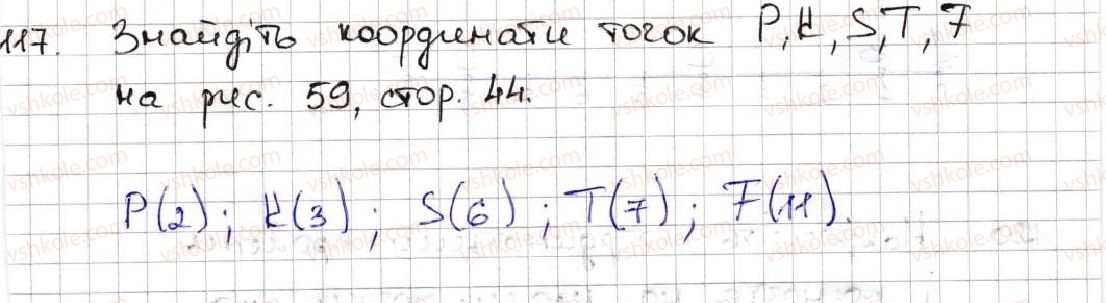 117. Знайдіть координати точок P, K, S, T, F
на рис. 59, стор. 44.
P(2); K(3); S(6); T(7); F(11).